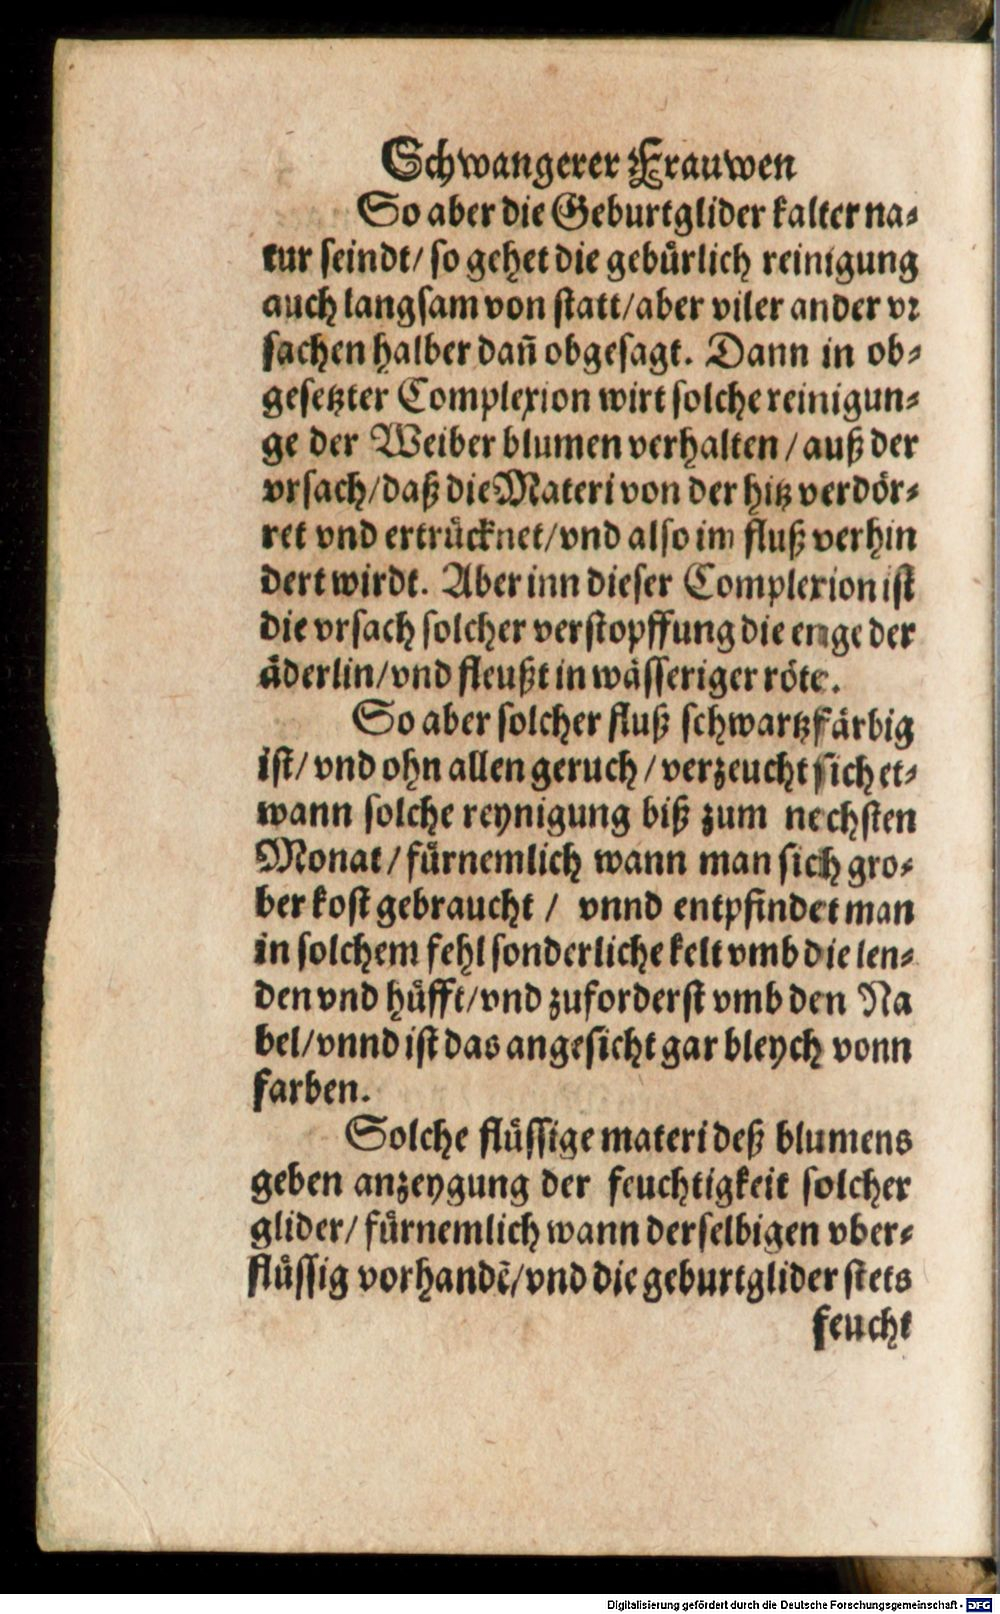 Schwangerer Frauwen
So aber die Geburtglider kalter na⸗
tur seindt/ so gehet die gebürlich reinigung
auch langsam von statt/aber viler ander vr
sachen halber dañ obgesagt. Dann in ob⸗
gesetzter Complexion wirt solche reinigun⸗
ge der Weiber blumen verhalten / auß der
vrsach/daß die Materi von der hitz verdör⸗
ret vnd ertrücknet/vnd also im fluß verhin
dert wirdt. Aber inn dieser Complexion ist
die vrsach solcher verstopffung die enge der
äderlin/vnd fleußt in wässeriger röte.
So aber solcher fluß schwartzfärbig
ist/ vnd ohn allen geruch / verzeucht sich et⸗
wann solche reynigung biß zum nechsten
Monat / fürnemlich wann man sich gro⸗
ber kost gebraucht / vnnd entpfindet man
in solchem fehl sonderliche kelt vmb die len⸗
den vnd hüfft/vnd zuforderst vmb den Na
bel/vnnd ist das angesicht gar bleych vonn
farben.
Solche flüssige materi deß blumens
geben anzeygung der feuchtigkeit solcher
glider/ fürnemlich wann derselbigen vber⸗
flüssig vorhandẽ/vnd die geburtglider stets
feucht
Digitalisierung gefördert durch die Deutsche Forschungsgemeinschaft - DFG